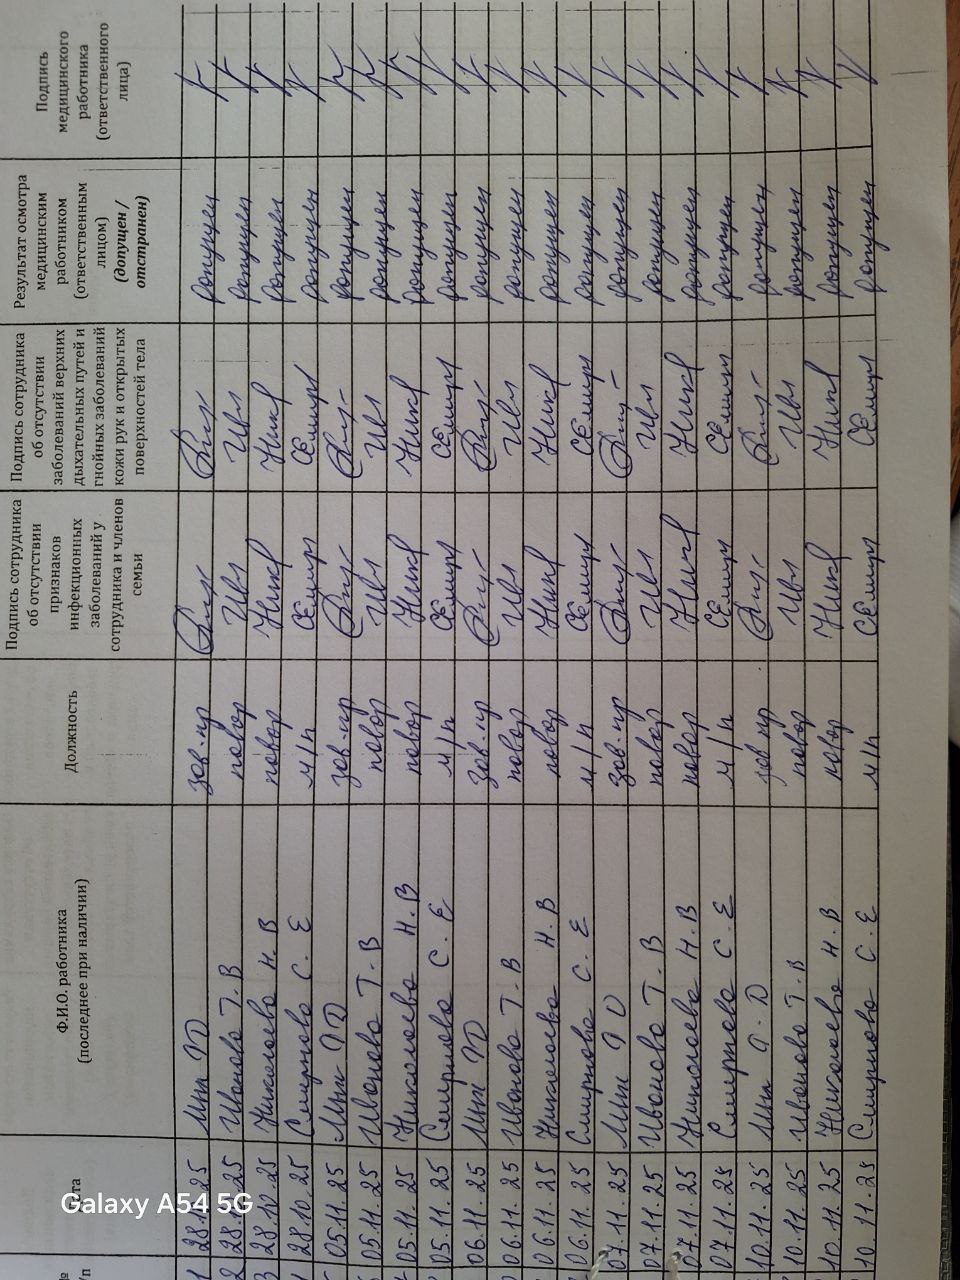 №
п/п
Дата
Ф.И.О. работника
(последнее при наличии)
Должность
Подпись сотрудника
об отсутствии
признаков
инфекционных
заболеваний у
сотрудника и членов
семьи
Подпись сотрудника
об отсутствии
заболеваний верхних
дыхательных путей и
гнойных заболеваний
кожи рук и открытых
поверхностей тела
Результат осмотра
медицинским
работником
(ответственным
лицом)
(допущен /
отстранен)
Подпись
медицинского
работника
(ответственного
лица)
1 28.10.25 зав.-пр допущен
2 28.10.25 Иванова Т.В повар Ивс Ивс допущен
3 28.10.25 Николаева Н.В повар Ник Ник допущен
28.10.25 Смирнова С.Е м/п Смир Смир допущен
05.11.25 зав.-пр допущен
05.11.25 Иванова Т.В повар Ивс Ивс допущен
05.11.25 Николаева Н.В повар Ник Ник допущен
05.11.25 Смирнова С.Е м/п Смир Смир допущен
06.11.25 зав.-пр допущен
06.11.25 Иванова Т.В повар Ивс Ивс допущен
06.11.25 Николаева Н.В повар Ник Ник допущен
06.11.25 Смирнова С.Е м/п Смир Смир допущен
07.11.25 зав.-пр допущен
07.11.25 Иванова Т.В повар Ивс Ивс допущен
07.11.25 Николаева Н.В повар Ник Ник допущен
07.11.25 Смирнова С.Е м/п Смир Смир допущен
10.11.25 зав пр допущен
10.11.25 Иванова Т.В повар Ивс Ивс допущен
10.11.25 Николаева Н.В повар Ник Ник допущен
10.11.25 Смирнова С.Е м/п Смир Смир допущен
Galaxy A54 5G